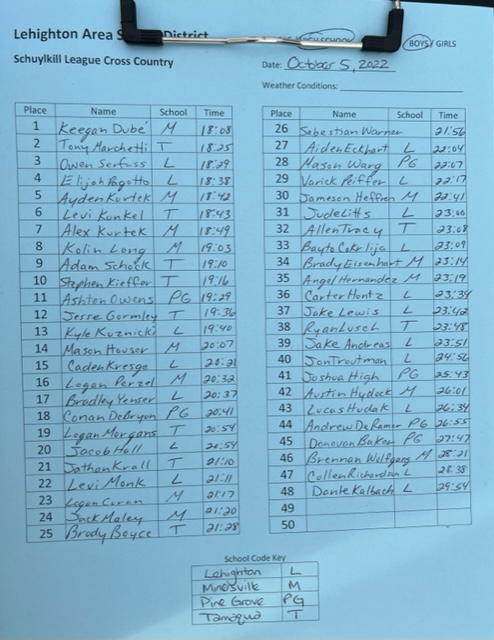 Lehighton Area School District
BOYS GIRLS
Schuylkill League Cross Country
Date: October 5, 2022
Weather Conditions:
Place Name School Time
1 Keegan Dubé M 18:08
2 Tony Marchetti T 18:25
3 Owen Serfass L 18:29
4 Elijah Pagotto L 18:38
5 Ayden Kurtek M 18:42
6 Levi Kunkel T 18:43
7 Alex Kurtek M 18:49
8 Kolin Long M 19:03
9 Adam Schock T 19:10
10 Stephen Kieffer T 19:16
11 Ashton Owens PG 19:29
12 Jesse Gormley T 19:36
13 Kyle Kuznicki L 19:40
14 Mason Houser M 20:07
15 Caden Kresge L 20:21
16 Logan Perzel M 20:32
17 Bradley Yenser L 20:37
18 Conan DeBryon PG 20:41
19 Logan Morgans T 20:54
20 Jacob Hall L 20:54
21 Jathan Krall T 21:10
22 Levi Monk L 21:11
23 Logan Curan M 21:17
24 Jack Maley M 21:20
25 Brody Boyce T 21:28
Place Name School Time
26 Sebestian Warner 21:56
27 Aiden Eckhart L 22:04
28 Mason Warg PG 22:07
29 Varick Peiffer L 22:17
30 Jameson Heffren M 22:41
31 Jude Litts L 23:00
32 Allen Tracy T 23:08
33 L 23:09
34 Brady Eisenhart M 23:14
35 Angel Hernandez M 23:19
36 Carter Hontz L 23:34
37 Jake Lewis L 23:42
38 Ryan Lusch T 23:48
39 Jake Andreas L 23:51
40 Jon Troutman L 24:56
41 Joshua High PG 25:43
42 Austin Hydock M 26:01
43 Lucas Hudak L 26:34
44 Andrew DeRamer PG 26:55
45 Donovan Baker PG 27:47
46 Brennan Wolfgang M 28:21
47 Cullen Richardson L 28:38
48 Dante Kalbach L 29:54
49
50
School Code Key
Lehighton L
Minersville M
Pine Grove PG
Tamaqua T